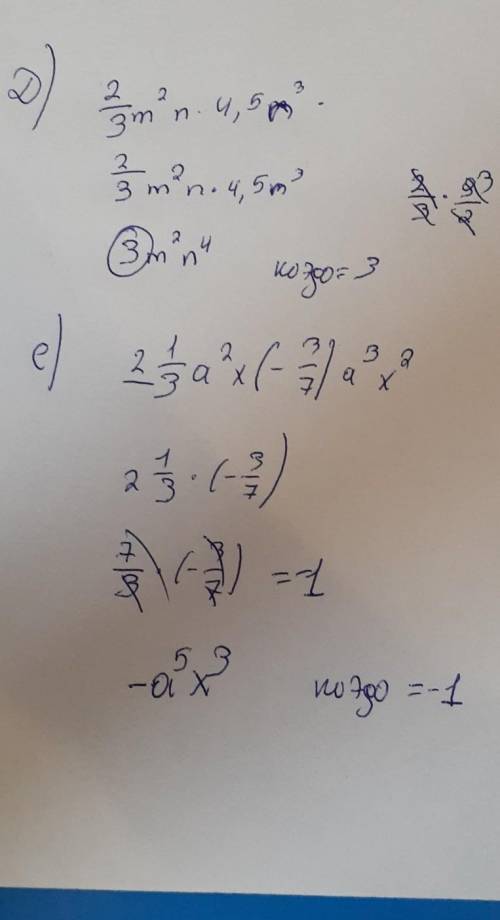 D) 2/3 m²n · 4,5m³ ·
2/3 m²n · 4,5m³
2/3 · 9³/2
3m²n⁴ коэфф = 3
e) 2 1/3 a²x (- 3/7) a³x²
2 1/3 · (- 3/7)
7/3 · (- 3/7) = -1
-a⁵x³ коэфф = -1